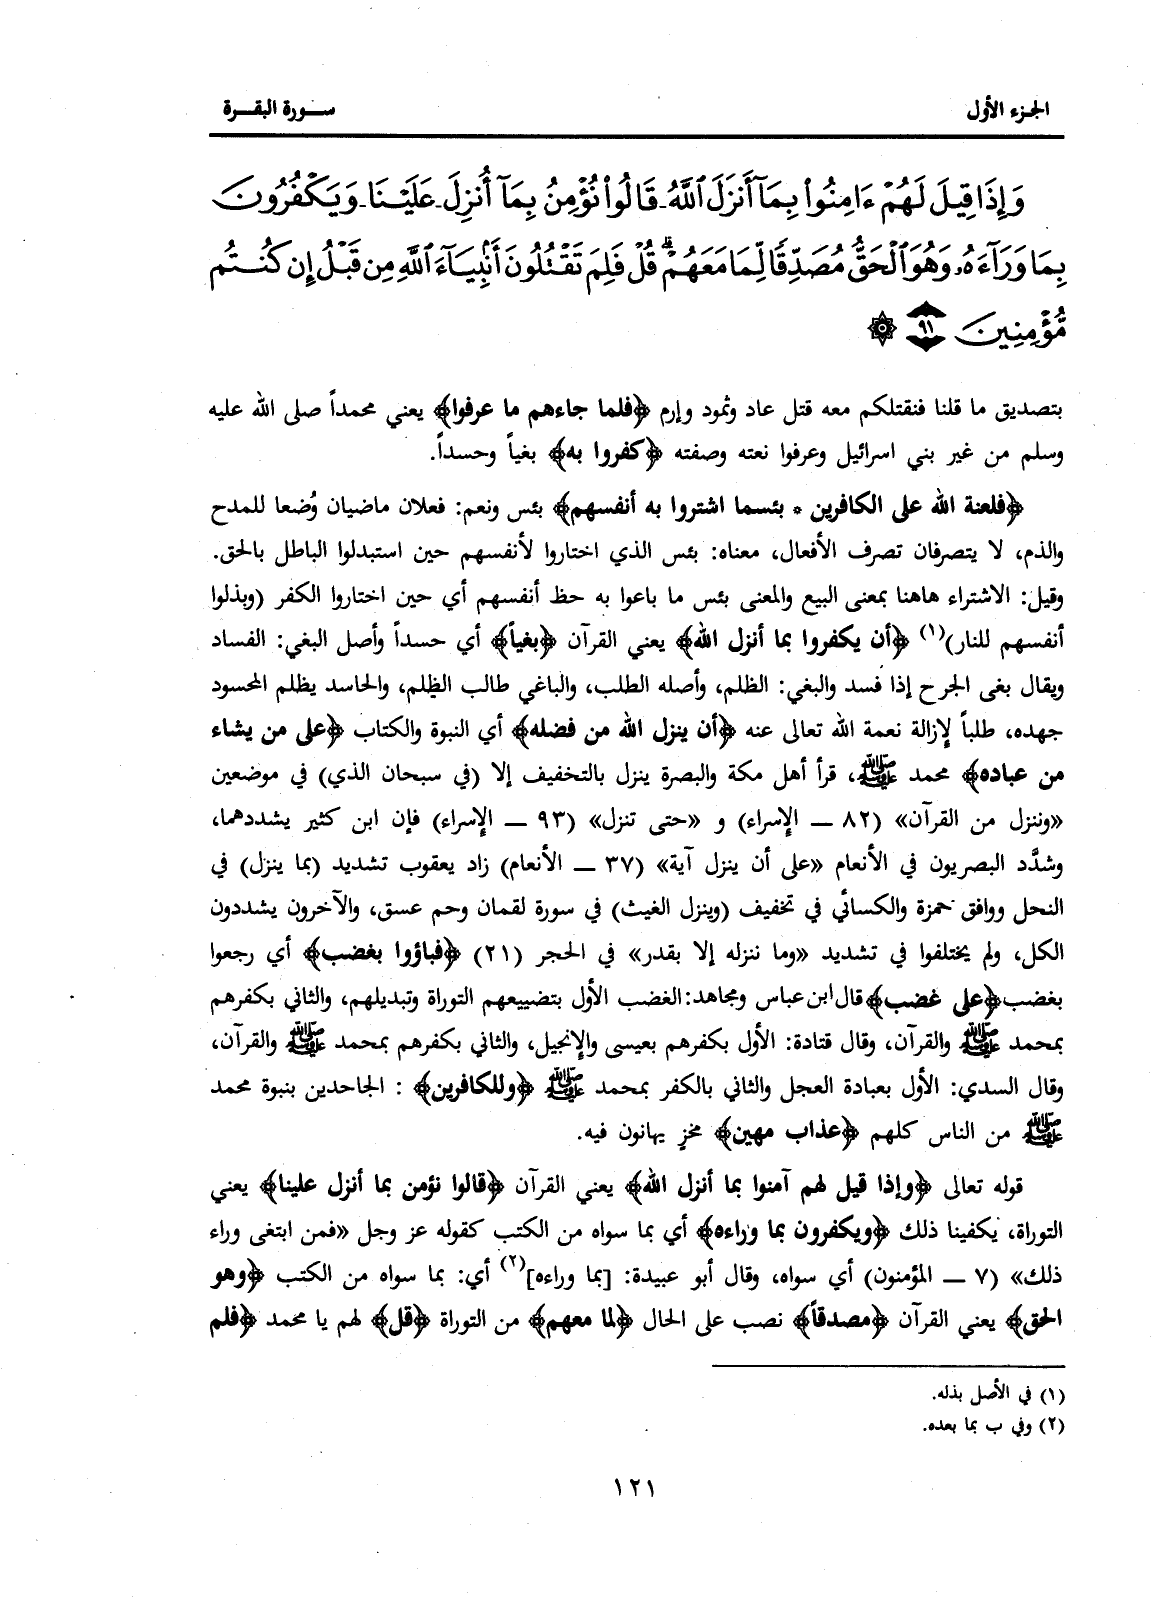 الجزء الأول
سورة البقرة
وَإِذَا قِيلَ لَهُمْ ءَامِنُواْ بِمَآ أَنزَلَ ٱللَّهُ قَالُواْ نُؤْمِنُ بِمَآ أُنزِلَ عَلَيْنَا وَيَكْفُرُونَ
بِمَا وَرَآءَهُۥ وَهُوَ ٱلْحَقُّ مُصَدِّقًا لِّمَا مَعَهُمْ ۗ قُلْ فَلِمَ تَقْتُلُونَ أَنۢبِيَآءَ ٱللَّهِ مِن قَبْلُ إِن كُنتُم
مُّؤْمِنِينَ ٩١ ۞
بتصديق ما قلنا فنقتلكم معه قتل عاد وثمود وإرم ﴿فلما جاءهم ما عرفوا﴾ يعني محمداً صلى الله عليه
وسلم من غير بني اسرائيل وعرفوا نعته وصفته ﴿كفروا به﴾ بغياً وحسداً.
﴿فلعنة الله على الكافرين * بئسما اشتروا به أنفسهم﴾ بئس ونعم: فعلان ماضيان وُضعا للمدح
والذم، لا يتصرفان تصرف الأفعال، معناه: بئس الذي اختاروا لأنفسهم حين استبدلوا الباطل بالحق.
وقيل: الاشتراء هاهنا بمعنى البيع والمعنى بئس ما باعوا به حظ أنفسهم أي حين اختاروا الكفر (وبذلوا
أنفسهم للنار)(١) ﴿أن يكفروا بما أنزل الله﴾ يعني القرآن ﴿بغياً﴾ أي حسداً وأصل البغي: الفساد
ويقال بغى الجرح إذا فسد والبغي: الظلم، وأصله الطلب، والباغي طالب الظلم، والحاسد يظلم المحسود
جهده، طلباً لإزالة نعمة الله تعالى عنه ﴿أن ينزل الله من فضله﴾ أي النبوة والكتاب ﴿على من يشاء
من عباده﴾ محمد ﷺ، قرأ أهل مكة والبصرة ينزل بالتخفيف إلا (في سبحان الذي) في موضعين
«وننزل من القرآن» (٨٢ ــ الإسراء) و «حتى تنزل» (٩٣ ــ الإسراء) فإن ابن كثير يشددهما،
وشدَّد البصريون في الأنعام «على أن ينزل آية» (٣٧ ــ الأنعام) زاد يعقوب تشديد (بما ينزل) في
النحل ووافق حمزة والكسائي في تخفيف (وينزل الغيث) في سورة لقمان وحم عسق، والآخرون يشددون
الكل، ولم يختلفوا في تشديد «وما ننزله إلا بقدر» في الحجر (٢١) ﴿فباؤوا بغضب﴾ أي رجعوا
بغضب ﴿على غضب﴾ قال ابن عباس ومجاهد: الغضب الأول بتضييعهم التوراة وتبديلهم، والثاني بكفرهم
بمحمد ﷺ والقرآن، وقال قتادة: الأول بكفرهم بعيسى والإنجيل، والثاني بكفرهم بمحمد ﷺ والقرآن،
وقال السدي: الأول بعبادة العجل والثاني بالكفر بمحمد ﷺ ﴿وللكافرين﴾ : الجاحدين بنبوة محمد
ﷺ من الناس كلهم ﴿عذاب مهين﴾ مخزٍ يهانون فيه.
قوله تعالى ﴿وإذا قيل لهم آمنوا بما أنزل الله﴾ يعني القرآن ﴿قالوا نؤمن بما أنزل علينا﴾ يعني
التوراة، يكفينا ذلك ﴿ويكفرون بما وراءه﴾ أي بما سواه من الكتب كقوله عز وجل «فمن ابتغى وراء
ذلك» (٧ ــ المؤمنون) أي سواه، وقال أبو عبيدة: [بما وراءه](٢) أي: بما سواه من الكتب ﴿وهو
الحق﴾ يعني القرآن ﴿مصدقاً﴾ نصب على الحال ﴿لما معهم﴾ من التوراة ﴿قل﴾ لهم يا محمد ﴿فلم
(١) في الأصل بذله.
(٢) وفي ب بما بعده.
١٢١